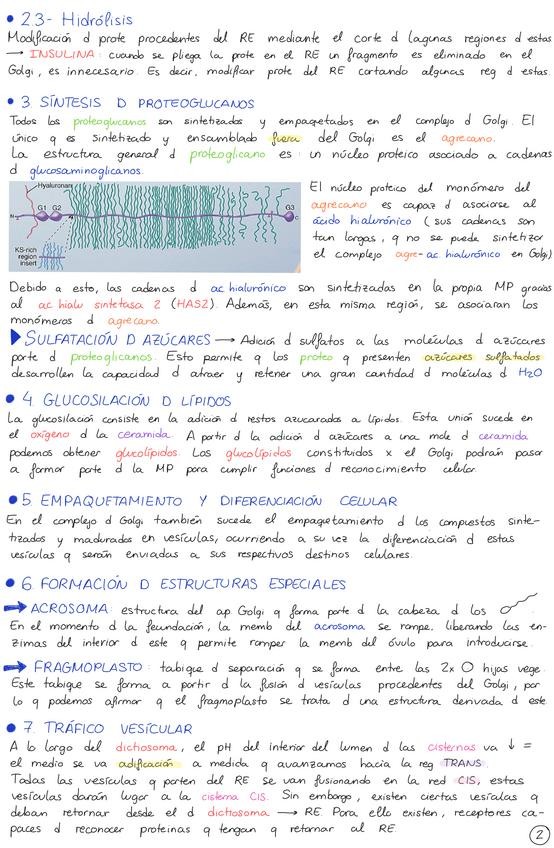 • 2.3- Hidrólisis
Modificación d prote procedentes del RE mediante el corte d lagunas regiones d estas
→ INSULINA: cuando se pliega la prote en el RE un fragmento es eliminado en el
Golgi, es innecesario. Es decir, modificar prote del RE cortando algunas reg d estas.
• 3 SÍNTESIS D PROTEOGLUCANOS
Todos los proteoglucanos son sintetizados y empaquetados en el complejo d Golgi. El
único q es sintetizado y ensamblado fuera del Golgi es el agrecano.
La estructura general d proteoglicano es: un núcleo proteico asociado a cadenas
d glucosaminoglicanos.
Hyaluronan
G1 G2 G3
N C
KS-rich
region
insert
El núcleo proteico del monómero del
agrecano es capaz d asociarse al
ácido hialurónico (sus cadenas son
tan largas, q no se puede sintetizar
el complejo agre-ac hialurónico en Golgi)
Debido a esto, las cadenas d ac hialurónico son sintetizadas en la propia MP gracias
al ac hialu sintetasa 2 (HAS2). Además, en esta misma región, se asociarán los
monómeros d agrecano.
▶ SULFATACIÓN D AZÚCARES → Adición d sulfatos a las moléculas d azúcares
porte d proteoglicanos. Esto permite q los proteo q presenten azúcares sulfatados
desarrollen la capacidad d atraer y retener una gran cantidad d moléculas d H2O
• 4. GLUCOSILACIÓN D LÍPIDOS
La glucosilación consiste en la adición d restos azucarados a lípidos. Esta unión sucede en
el oxígeno d la ceramida. A partir d la adición d azúcares a una mole d ceramida
podemos obtener glucolípidos. Los glucolípidos constituidos x el Golgi podrán pasar
a formar parte d la MP para cumplir funciones d reconocimiento celular.
• 5. EMPAQUETAMIENTO Y DIFERENCIACIÓN CELULAR
En el complejo d Golgi también sucede el empaquetamiento d los compuestos sinte-
tizados y madurados en vesículas, ocurriendo a su vez la diferenciación d estas
vesículas q serán enviadas a sus respectivos destinos celulares.
• 6. FORMACIÓN D ESTRUCTURAS ESPECIALES
→ ACROSOMA: estructura del ap Golgi q forma parte d la cabeza d los
En el momento d la fecundación, la memb del acrosoma se rompe, liberando las en-
zimas del interior d este q permite romper la memb del óvulo para introducirse.
→ FRAGMOPLASTO: tabique d separación q se forma entre las 2x O hijas vege.
Este tabique se forma a partir d la fusión d vesículas procedentes del Golgi, por
lo q podemos afirmar q el fragmoplasto se trata d una estructura derivada d este.
• 7. TRÁFICO VESICULAR
A lo largo del dictiosoma, el pH del interior del lumen d las cisternas va ↓ =
el medio se va adificación a medida q avanzamos hacia la reg TRANS.
Todas las vesículas q parten del RE se van fusionando en la red CIS, estas
vesículas darán lugar a la cisterna CIS. Sin embargo, existen ciertas vesículas q
deban retornar desde el d dictiosoma → RE. Para ello existen, receptores ca-
paces d reconocer proteínas q tengan q retornar al RE.
2